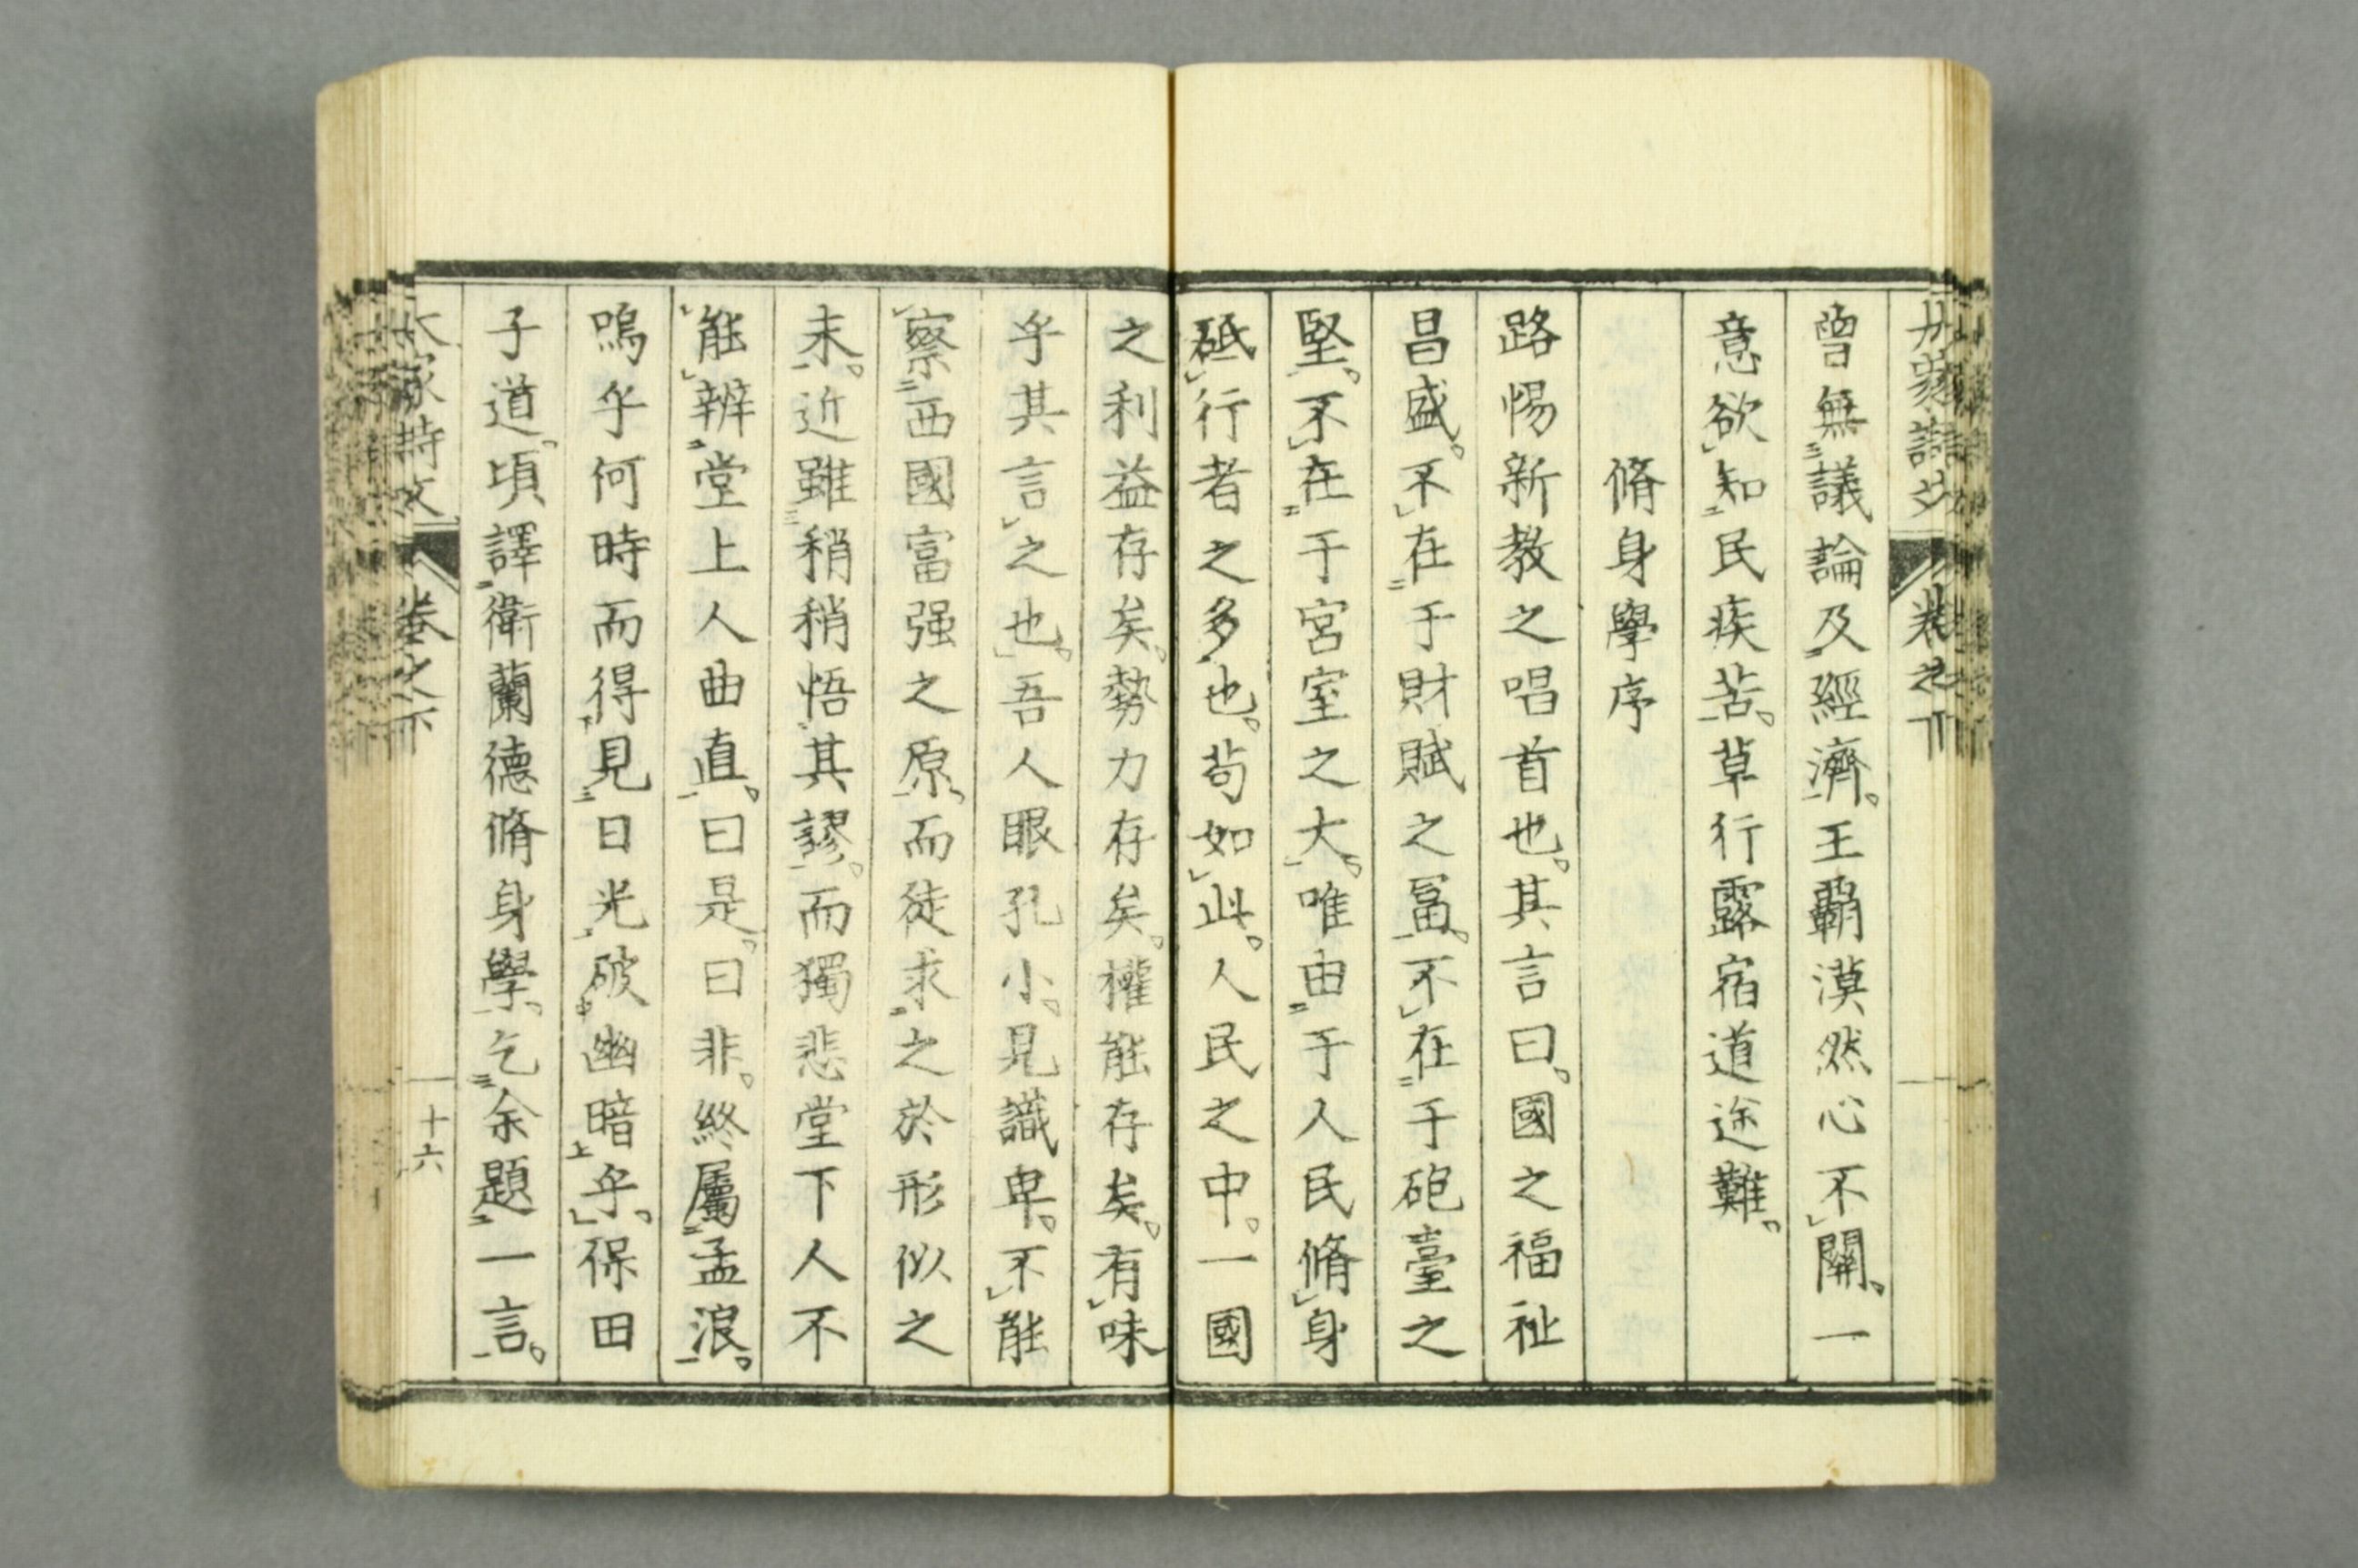 曽無議論及經濟。王覇漠然心不關。一
意欲知民疾苦。草行露宿道途難。
脩身學序
路惕新教之唱首也。其言曰。國之福祉
昌盛。不在于財賦之冨。不在于砲臺之
堅。不在于宮室之大。唯由于人民脩身
砥行者之多也。苟如此。人民之中。一國
之利益存矣。勢力存矣。權能存矣。有味
乎其言之也。吾人眼孔小。見識卑。不能
察西國富强之原。而徒求之於形似之
末。近雖稍稍悟其謬。而獨悲堂下人不
能辨堂上人曲直。曰是。曰非。終屬孟浪。
嗚乎何時而得見日光破幽暗乎。保田
子道。頃譯衛蘭德脩身學。乞余題一言。
大家詩文
卷之下
十六